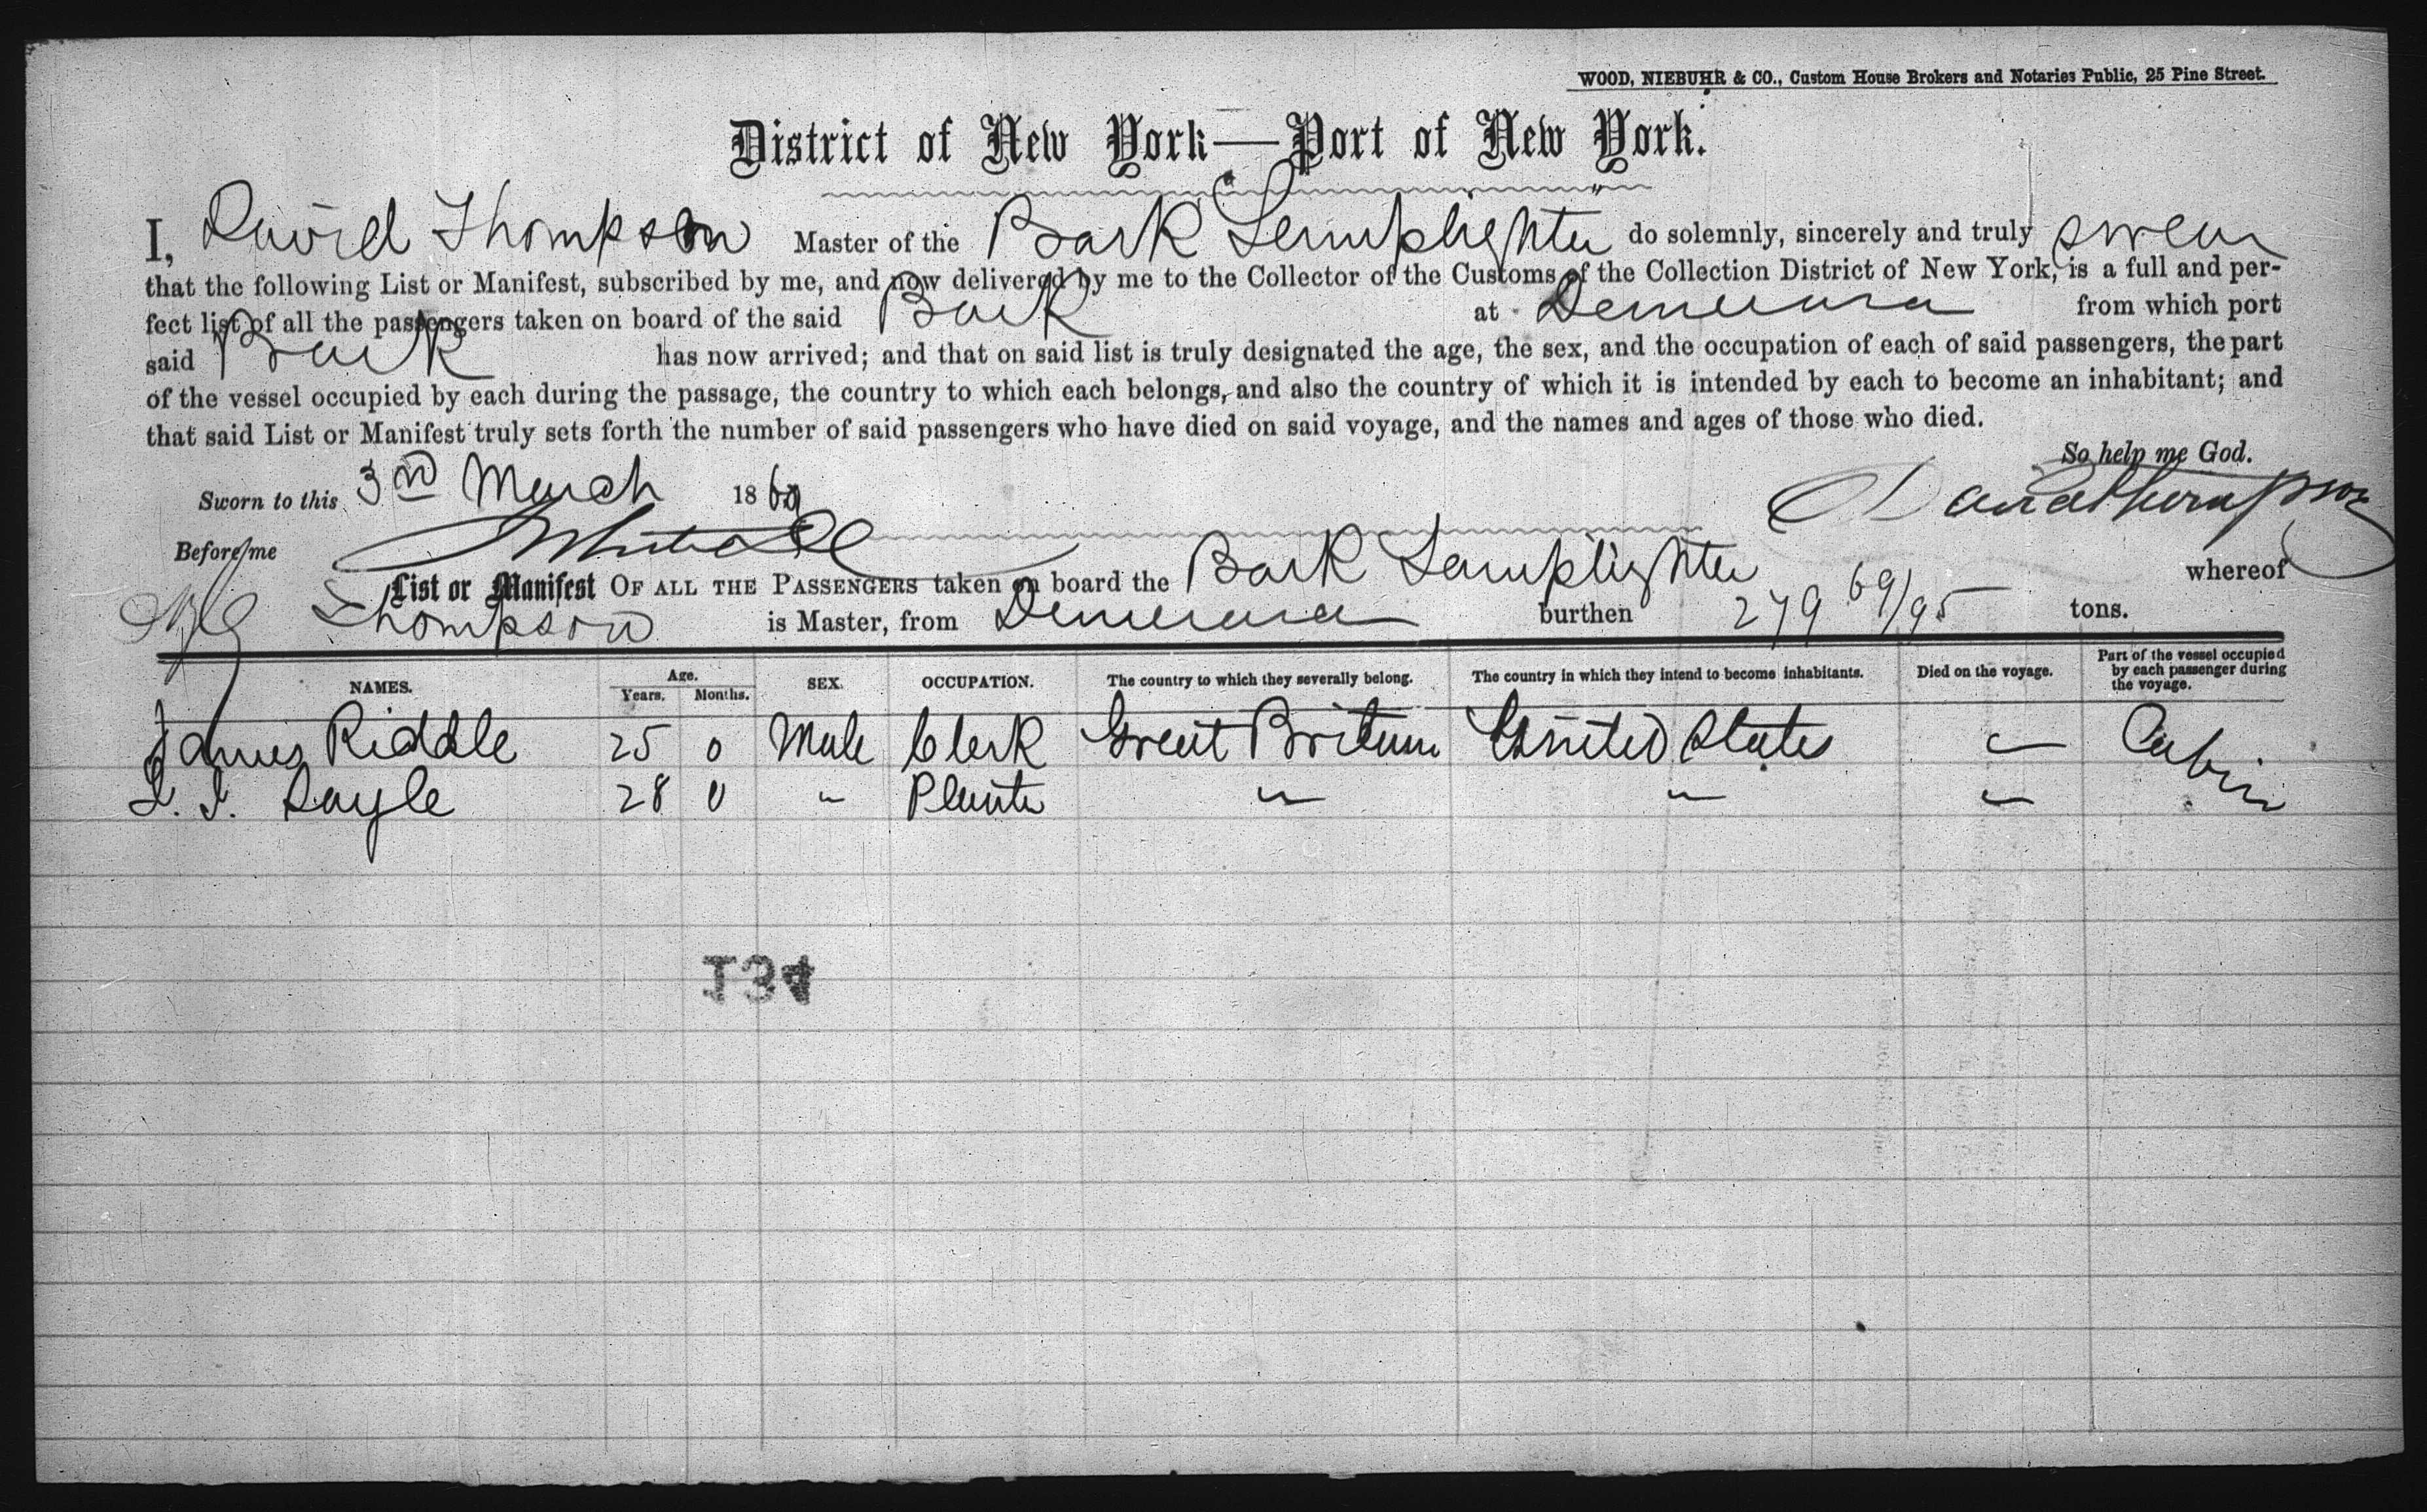 WOOD, NIEBUHR & CO., Custom House Brokers and Notaries Public, 25 Pine Street.
District of New York—Port of New York.
I, David Thompson Master of the Bark Lamplighter do solemnly, sincerely and truly swear
that the following List or Manifest, subscribed by me, and now delivered by me to the Collector of the Customs of the Collection District of New York, is a full and per-
fect list of all the passengers taken on board of the said Bark at Demerara from which port
said Bark has now arrived; and that on said list is truly designated the age, the sex, and the occupation of each of said passengers, the part
of the vessel occupied by each during the passage, the country to which each belongs, and also the country of which it is intended by each to become an inhabitant; and
that said List or Manifest truly sets forth the number of said passengers who have died on said voyage, and the names and ages of those who died.
So help me God.
Sworn to this 3rd March 1860 David Thompson
Before me
List or Manifest OF ALL THE PASSENGERS taken on board the Bark Lamplighter whereof
Thompson is Master, from Demerara burthen 279 69/95 tons.
NAMES. Age. Years. Months. SEX. OCCUPATION. The country to which they severally belong. The country in which they intend to become inhabitants. Died on the voyage. Part of the vessel occupied by each passenger during the voyage.
James Riddle 25 0 Male Clerk Great Britain United States — Cabin
28 0 " Planter " " —
134